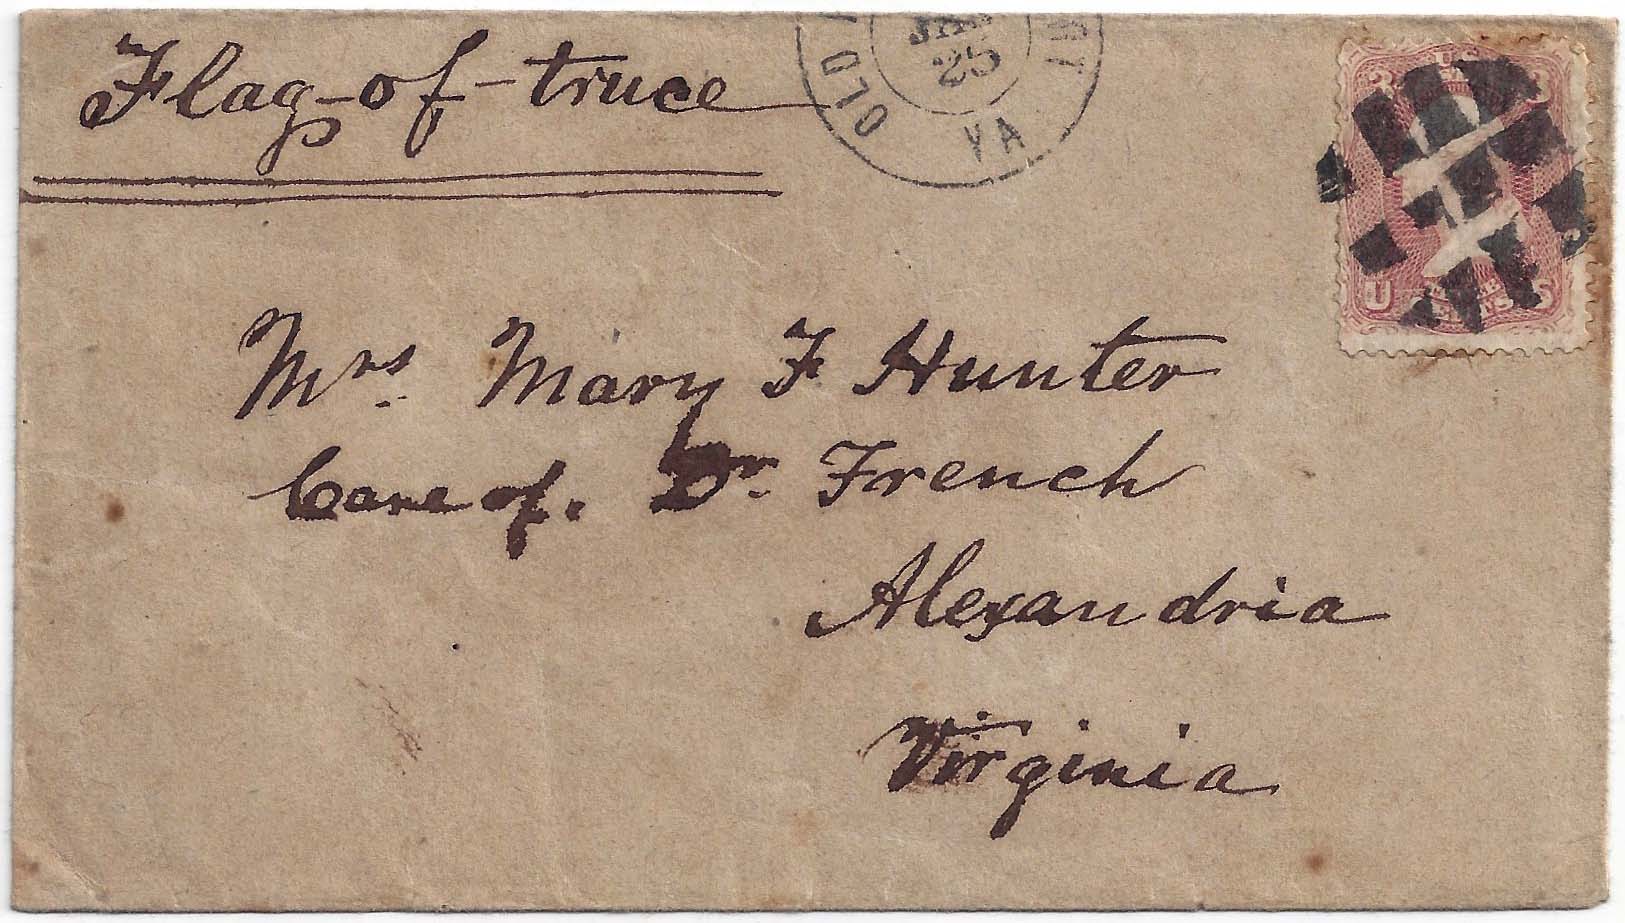 Flag-of-truce
OLD VA
JAN
25
3 3
U S
Mrs. Mary F Hunter
Care of. Dr. French
Alexandria
Virginia